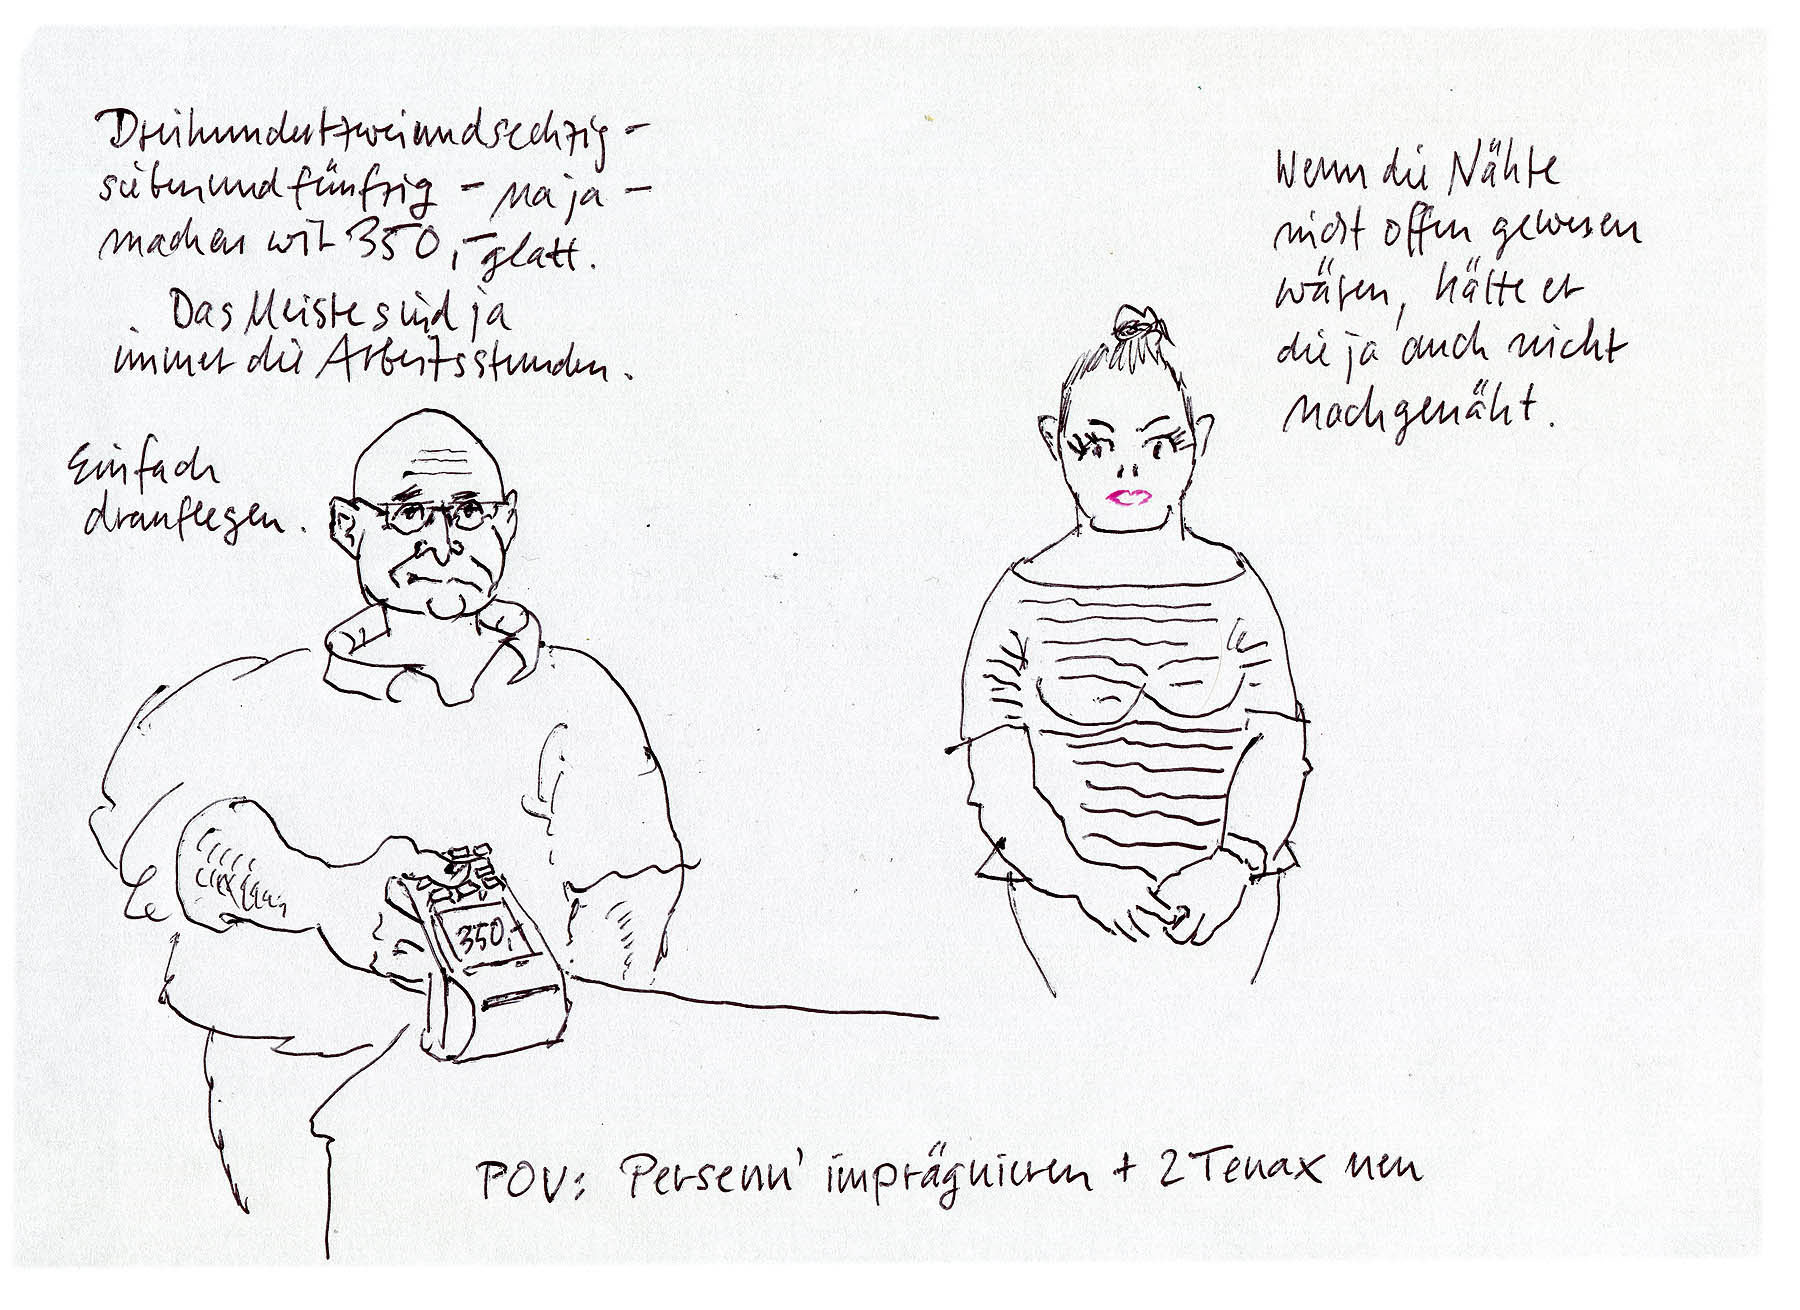 Dreihundertzweiundsechzig –
siebenundfünfzig – na ja –
machen wir 350,– glatt.
Das Meiste sind ja
immer die Arbeitsstunden.
Einfach
drauflegen.
Wenn die Nähte
nicht offen gewesen
wären, hätte er
die ja auch nicht
nachgenäht.
350,–
POV: Persenn' imprägnieren + 2 Tenax neu